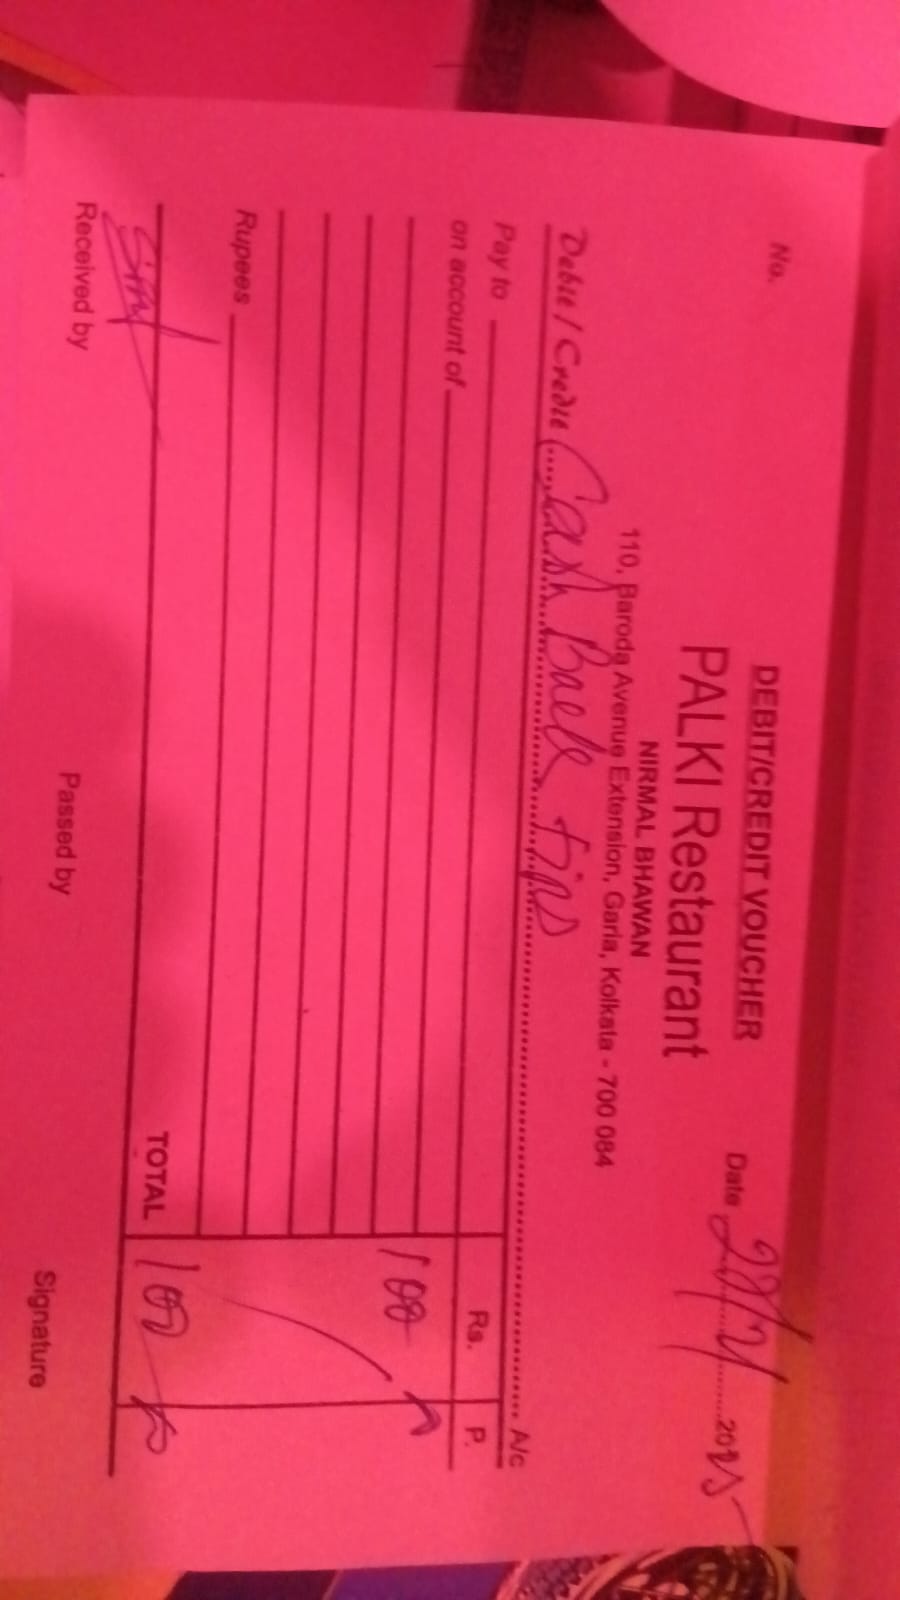 DEBIT/CREDIT VOUCHER
No.
PALKI Restaurant
Date 2025
NIRMAL BHAWAN
110, Baroda Avenue Extension, Garia, Kolkata - 700 084
Debit / Credit Cash Back A/c
Pay to
Rs. P.
on account of
100
Rupees
TOTAL 100
Received by Passed by Signature